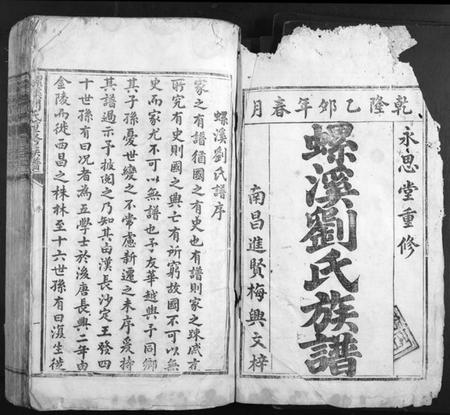 乾隆乙卯年春月
永思堂重修
螺溪劉氏族譜
南昌進賢梅興文梓
螺溪劉氏譜序
家之有譜猶國之有史也有譜則家之疎戚才
所究有史則國之興亡有所窮故國不可以無
史而家尤不可以無譜也予友華越與予同鄉
其子孫憂世變之不常慮新遷之未序爰持
其譜過示予披閱之乃知其由漢長沙定王發四
十世孫有曰況者為五學士於後唐長興二年由
金陵而徙西昌之株林至十六世孫有曰復生徙